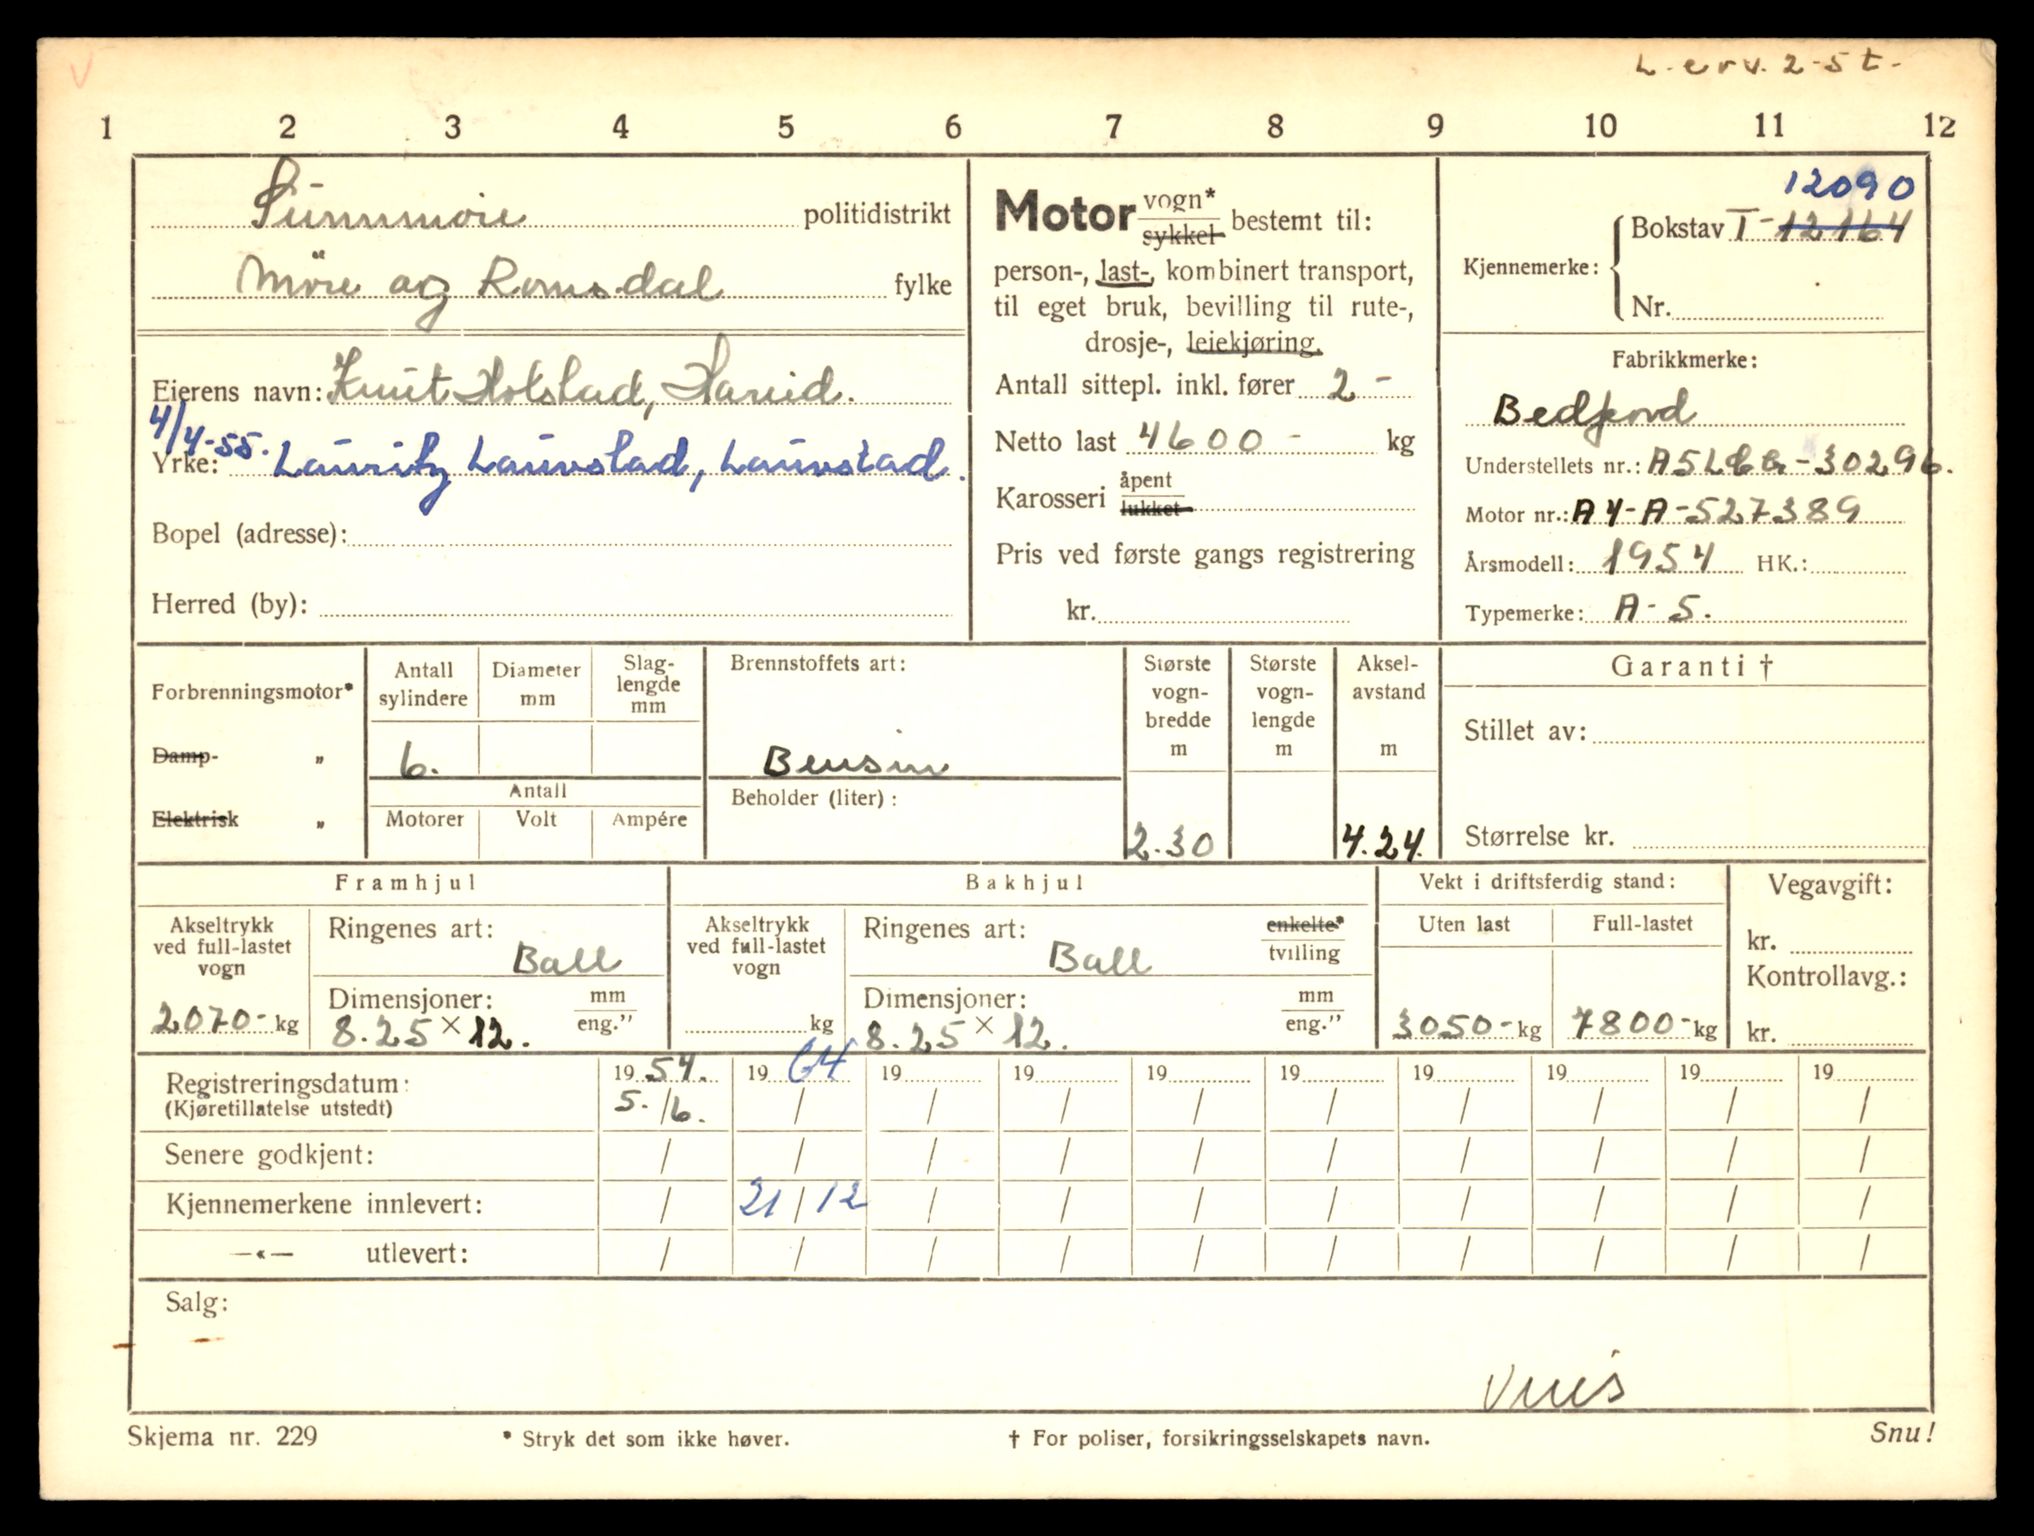 L. erv. 2-5 t.
1 2 3 4 5 6 7 8 9 10 11 12
Sunnmøre politidistrikt
Møre og Romsdal fylke
Eierens navn: Knut Holstad, Hareid.
4/4-55.
Yrke: Lauritz Lauvstad, Lauvstad.
Bopel (adresse):
Herred (by):
Motor vogn* sykkel bestemt til:
person-, last-, kombinert transport,
til eget bruk, bevilling til rute-,
drosje-, leiekjøring.
Antall sittepl. inkl. fører 2 -
Netto last 4600 - kg
Karosseri åpent lukket
Pris ved første gangs registrering
kr.
12090
Kjennemerke: Bokstav T- 12164
Nr.
Fabrikkmerke:
Bedford
Understellets nr.: -30296.
Motor nr.: A4-A-527389
Årsmodell: 1954 HK.:
Typemerke: A-5.
Forbrenningsmotor*
Damp- „
Elektrisk „
Antall sylindere
Diameter mm
Slag-lengde mm
6.
Antall
Motorer Volt Ampére
Brennstoffets art:
Bensin
Beholder (liter):
Største vogn-bredde m
2.30
Største vogn-lengde m
Aksel-avstand m
4.24.
Garanti †
Stillet av:
Størrelse kr.
Framhjul
Akseltrykk ved full-lastet vogn
2070- kg
Ringenes art:
Ball
Dimensjoner: mm eng.”
8.25 × 12.
Bakhjul
Akseltrykk ved full-lastet vogn
kg
Ringenes art: enkelte* tvilling
Ball
Dimensjoner: mm eng.”
8.25 × 12.
Vekt i driftsferdig stand:
Uten last Full-lastet
3050- kg 7800- kg
Vegavgift:
kr.
Kontrollavg.:
kr.
Registreringsdatum: 19 54. 19 64 19 19 19 19 19 19 19 19
(Kjøretillatelse utstedt) 5./6. / / / / / / / / /
Senere godkjent: / / / / / / / / / /
Kjennemerkene innlevert: / 21/12 / / / / / / / /
—«— utlevert: / / / / / / / / / /
Salg:
Skjema nr. 229 * Stryk det som ikke høver. † For poliser, forsikringsselskapets navn. Snu!